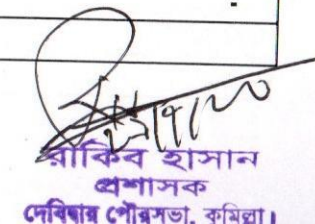 রাকিব হাসান
প্রশাসক
দেবিদ্বার পৌরসভা, কুমিল্লা।